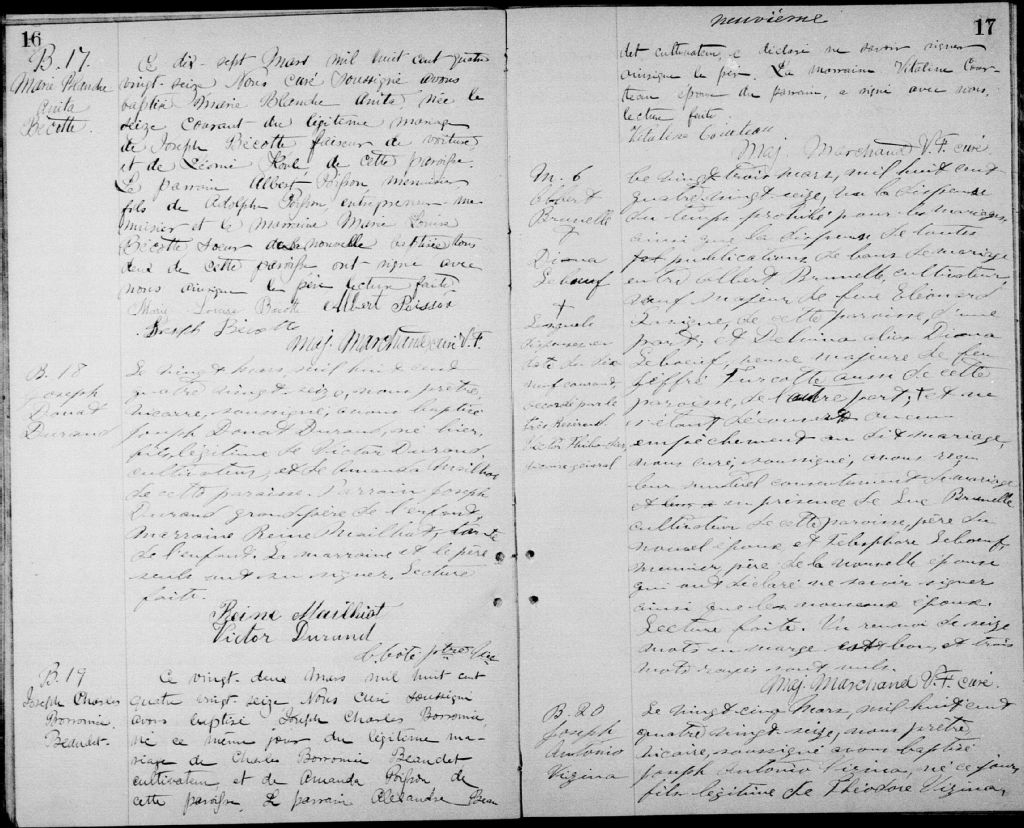 16
B. 17.
Marie Blanche
Anita
Bécotte.
Ce dix-sept Mars mil huit cent quatre
vingt-seize Nous curé soussigné avons
baptisé Marie Blanche Anita née le
seize courant du légitime mariage
de Joseph Bécotte faiseur de voiture
et de Léonie de cette paroisse.
Le parrain Albert Poisson, menuisier
fils de Adolphe Poisson, entrepreneur-me-
nuisier et la marraine Marie Louise
Bécotte soeur de la nouvelle baptisée tous
deux de cette paroisse ont signé avec
nous ainsique le père lecture faite
Marie Louise Bécotte Albert Poisson
Joseph Bécotte
Maj. Marchand curé V.F.
B. 18
Joseph
Donat
Durand
Le vingt mars, mil huit cent
quatre vingt-seize, nous prêtre,
vicaire, soussigné, avons baptisé
Joseph Donat Durand, né hier,
fils légitime de Victor Durand,
cultivateur, et de Amanda Mailhot
de cette paroisse. Parrain Joseph
Durand grand-père de l'enfant,
Marraine Reine Mailhot, tante
de l'enfant. La marraine et le père
seuls ont su signer. Lecture
faite.
Reine Mailhiot
Victor Durand
Côté ptre Vic
B. 19
Joseph Charles
Borromie
Beaudet.
Ce vingt-deux Mars mil huit cent
quatre vingt-seize Nous curé soussigné
avons baptisé Joseph Charles Borromie,
né ce même jour du légitime ma-
riage de Charles Borromie Beaudet
cultivateur et de Amanda Poisson de
cette paroisse. Le parrain Alexandre Beau
neuvième
17
det cultivateur, a déclaré ne savoir signer
ainsique le père. La marraine Vitaline Cour-
teau épouse du parrain, a signé avec nous,
lecture faite.
Vitaline Couteau
Maj. Marchand V.F. curé
M. 6
Albert
Brunelle
†
Diana
Leboeuf
†
Lesquels
dispenses en
date du dix
neuf courant
accordé par le
très Révérend
vicaire général
Le vingt trois mars, mil huit cent
quatre vingt seize, vu la dispense
du temps prohibé pour les mariages,
ainsi que la dispense de toutes
publications de bans de mariage
entre Albert Brunelle, cultivateur,
veuf majeur de feue Eléonard
de cette paroisse, d'une
part; et Delvina alias Diana
Leboeuf, veuve majeure de feu
Jeffré Turcotte aussi de cette
paroisse, de l'autre part; † et ne
s'étant découvert aucun
empêchement au dit mariage,
nous curé, soussigné, avons reçu
leur mutuel consentement de mariage
en présence de Luc Brunelle
cultivateur de cette paroisse, père du
nouvel époux et Télesphore Leboeuf,
meunier, père de la nouvelle épouse
qui ont déclaré ne savoir signer
ainsi que les nouveaux époux.
Lecture faite. Un renvoi de seize
mots en marge est bon, et trois
mots rayés sont nuls.
Maj. Marchand V.F. curé.
B. 20
Joseph
Antonio
Vigina
Le vingt cinq mars, mil huit cent
quatre vingt seize, nous prêtre
vicaire, soussigné avons baptisé
Joseph Antonio Vigina, né ce jour,
fils légitime de Théodore Vigina,